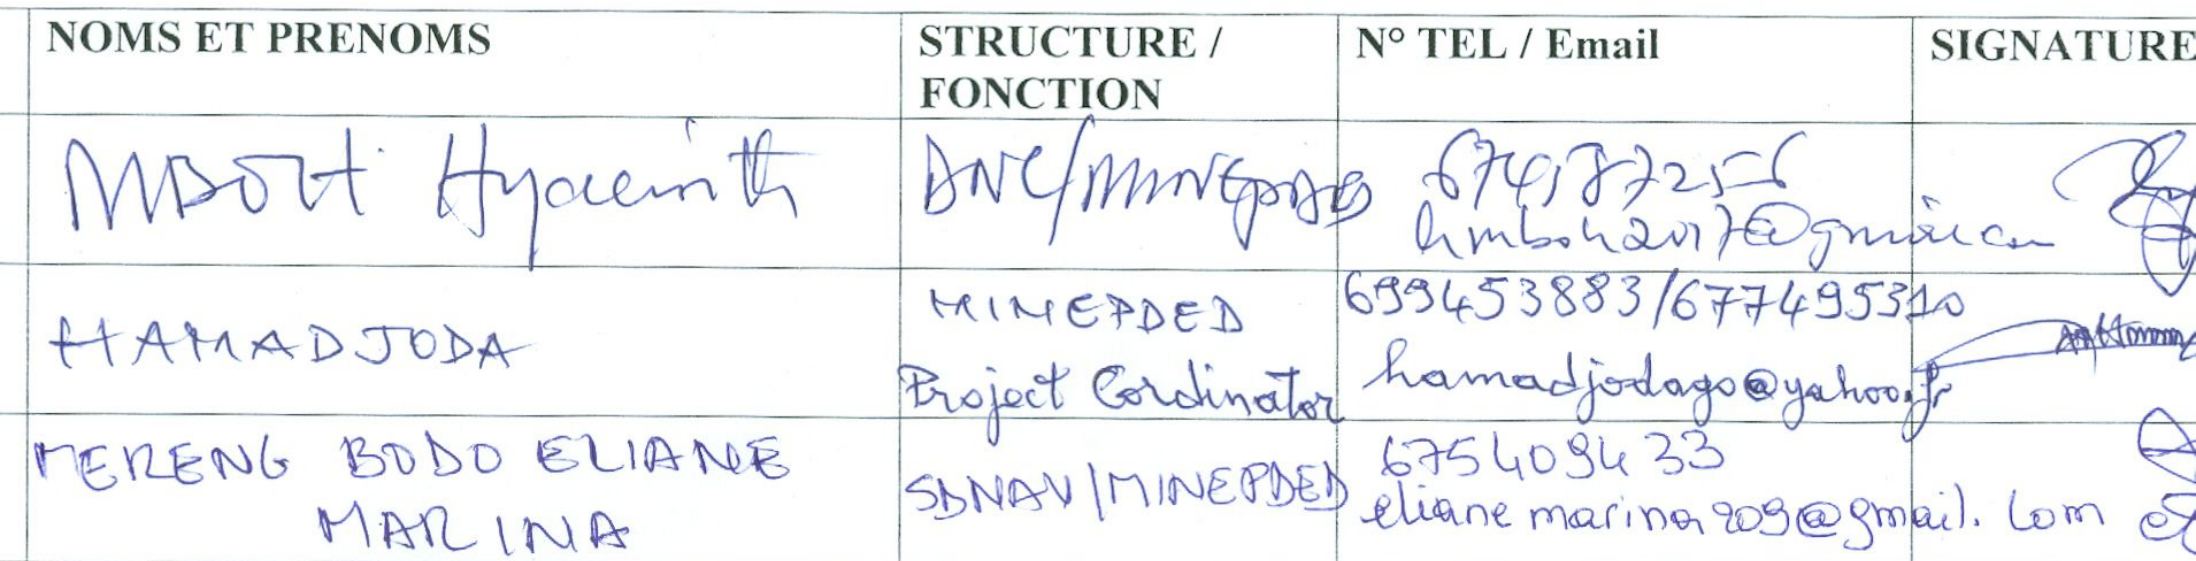 NOMS ET PRENOMS
STRUCTURE /
FONCTION
N° TEL / Email
SIGNATURE
Hyacinth
HAMADJODA
MINEPDED
Project Cordinator
699453883/677495310
hamadjodago@yahoo.fr
MERENG BODO ELIANE
MARINA
SDNAV/MINEPDED
675409433
elianemarina209@gmail.com